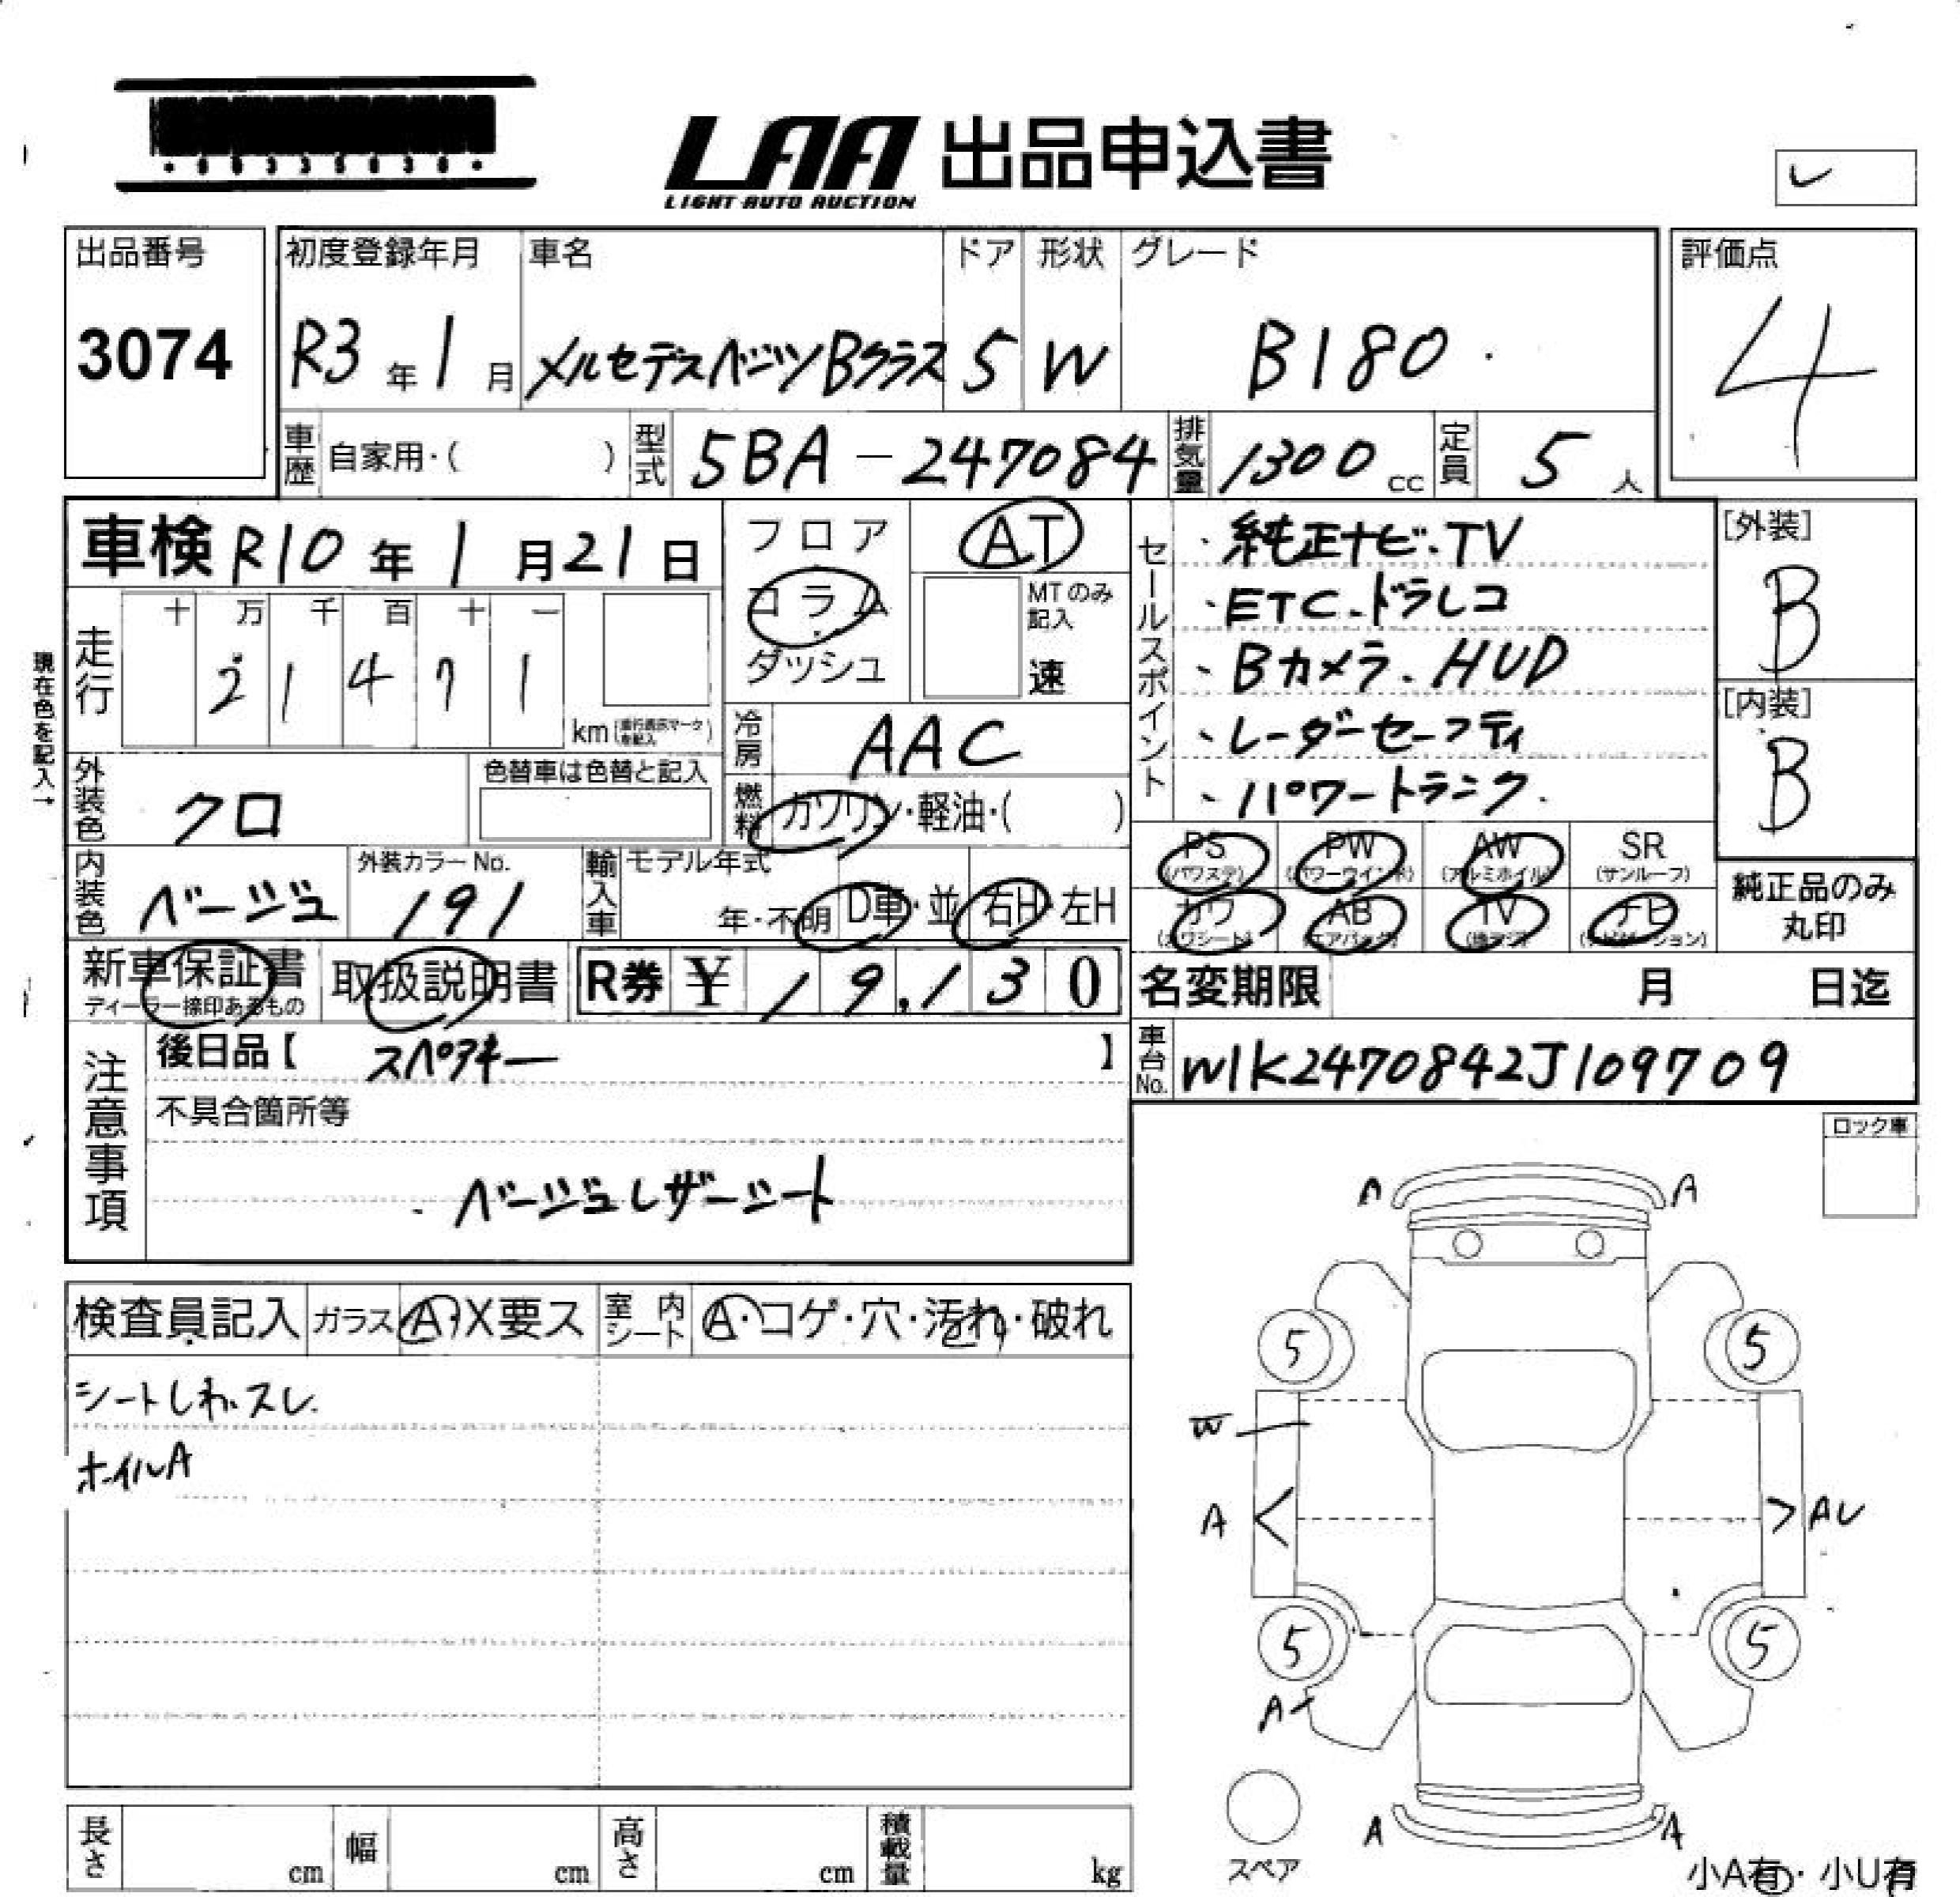 LAA 出品申込書
LIGHT AUTO AUCTION
レ
出品番号
3074
初度登録年月
R3年1月
車名
メルセデスベンツBクラス
ドア
5
形状
W
グレード
B180
評価点
4
車歴 自家用・( )
型式 5BA-247084
排気量 1300cc
定員 5人
車検 R10年1月21日
フロア
コラム
ダッシュ
AT
MTのみ記入
速
セールスポイント
・純正ナビ.TV
・ETC.ドラレコ
・Bカメラ.HUD
・レーダーセーフティ
・パワートランク.
[外装]
B
[内装]
B
現在色を記入→
走行
十 万 千 百 十 一
2 1 4 7 1
km(走行表示マークを記入)
冷房 AAC
外装色 クロ
色替車は色替と記入
燃料 ガソリン・軽油・( )
内装色 ベージュ
外装カラーNo.
191
輸入車 モデル年式
年・不明 D車・並 右H・左H
PS (パワステ)
PW (パワーウインド)
AW (アルミホイル)
SR (サンルーフ)
カワ (カワシート)
AB (エアバック)
TV (地デジ)
ナビ (ナビゲーション)
純正品のみ丸印
新車保証書
ディーラー捺印あるもの
取扱説明書
R券 ¥ 19,130
名変期限 月 日迄
注意事項
後日品【 スペアキー 】
車台No. W1K2470842J109709
不具合箇所等
ベージュレザーシート
ロック車
検査員記入 ガラス A・X要ス 室内シート A・コゲ・穴・汚れ・破れ
シートしわ.スレ.
ホイルA
A A
5 5
W
A AU
5 5
A
A A
スペア
長さ cm 幅 cm 高さ cm 積載量 kg
小A有・小U有